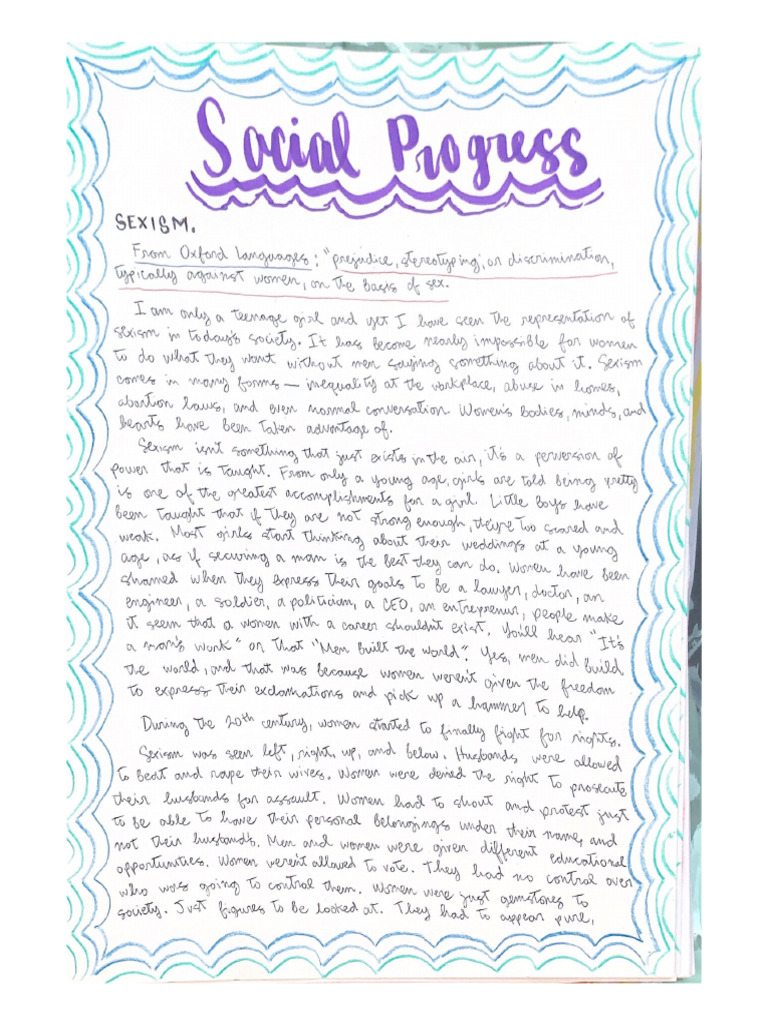 Social Progress
SEXISM.
From Oxford Languages: "prejudice, stereotyping, or discrimination,
typically against women, on the basis of sex.
I am only a teenage girl and yet I have seen the representation of
sexism in today's society. It has become nearly impossible for women
to do what they want without men saying something about it. Sexism
comes in many forms — inequality at the workplace, abuse in homes,
abortion laws, and even normal conversation. Women's bodies, minds, and
hearts have been taken advantage of.
Sexism isn't something that just exists in the air, it's a perversion of
power that is taught. From only a young age, girls are told being pretty
is one of the greatest accomplishments for a girl. Little boys have
been taught that if they are not strong enough, they're too scared and
weak. Most girls start thinking about their weddings at a young
age, as if securing a man is the best they can do. Women have been
shamed when they express their goals to be a lawyer, doctor, an
engineer, a soldier, a politician, a CEO, an entrepreneur, people make
it seem that a women with a career shouldn't exist. You'll hear "It's
a man's work" or that "Men built the world". Yes, men did build
the world, and that was because women weren't given the freedom
to express their exclamations and pick up a hammer to help.
During the 20th century, women started to finally fight for rights.
Sexism was seen left, right, up, and below. Husbands were allowed
to beat and rape their wives. Women were denied the right to prosecute
their husbands for assault. Women had to shout and protest just
to be able to have their personal belongings under their name, and
not their husband's. Men and women were given different educational
opportunities. Women weren't allowed to vote. They had no control over
who was going to control them. Women were just gemstones to
society. Just figures to be looked at. They had to appear pure,